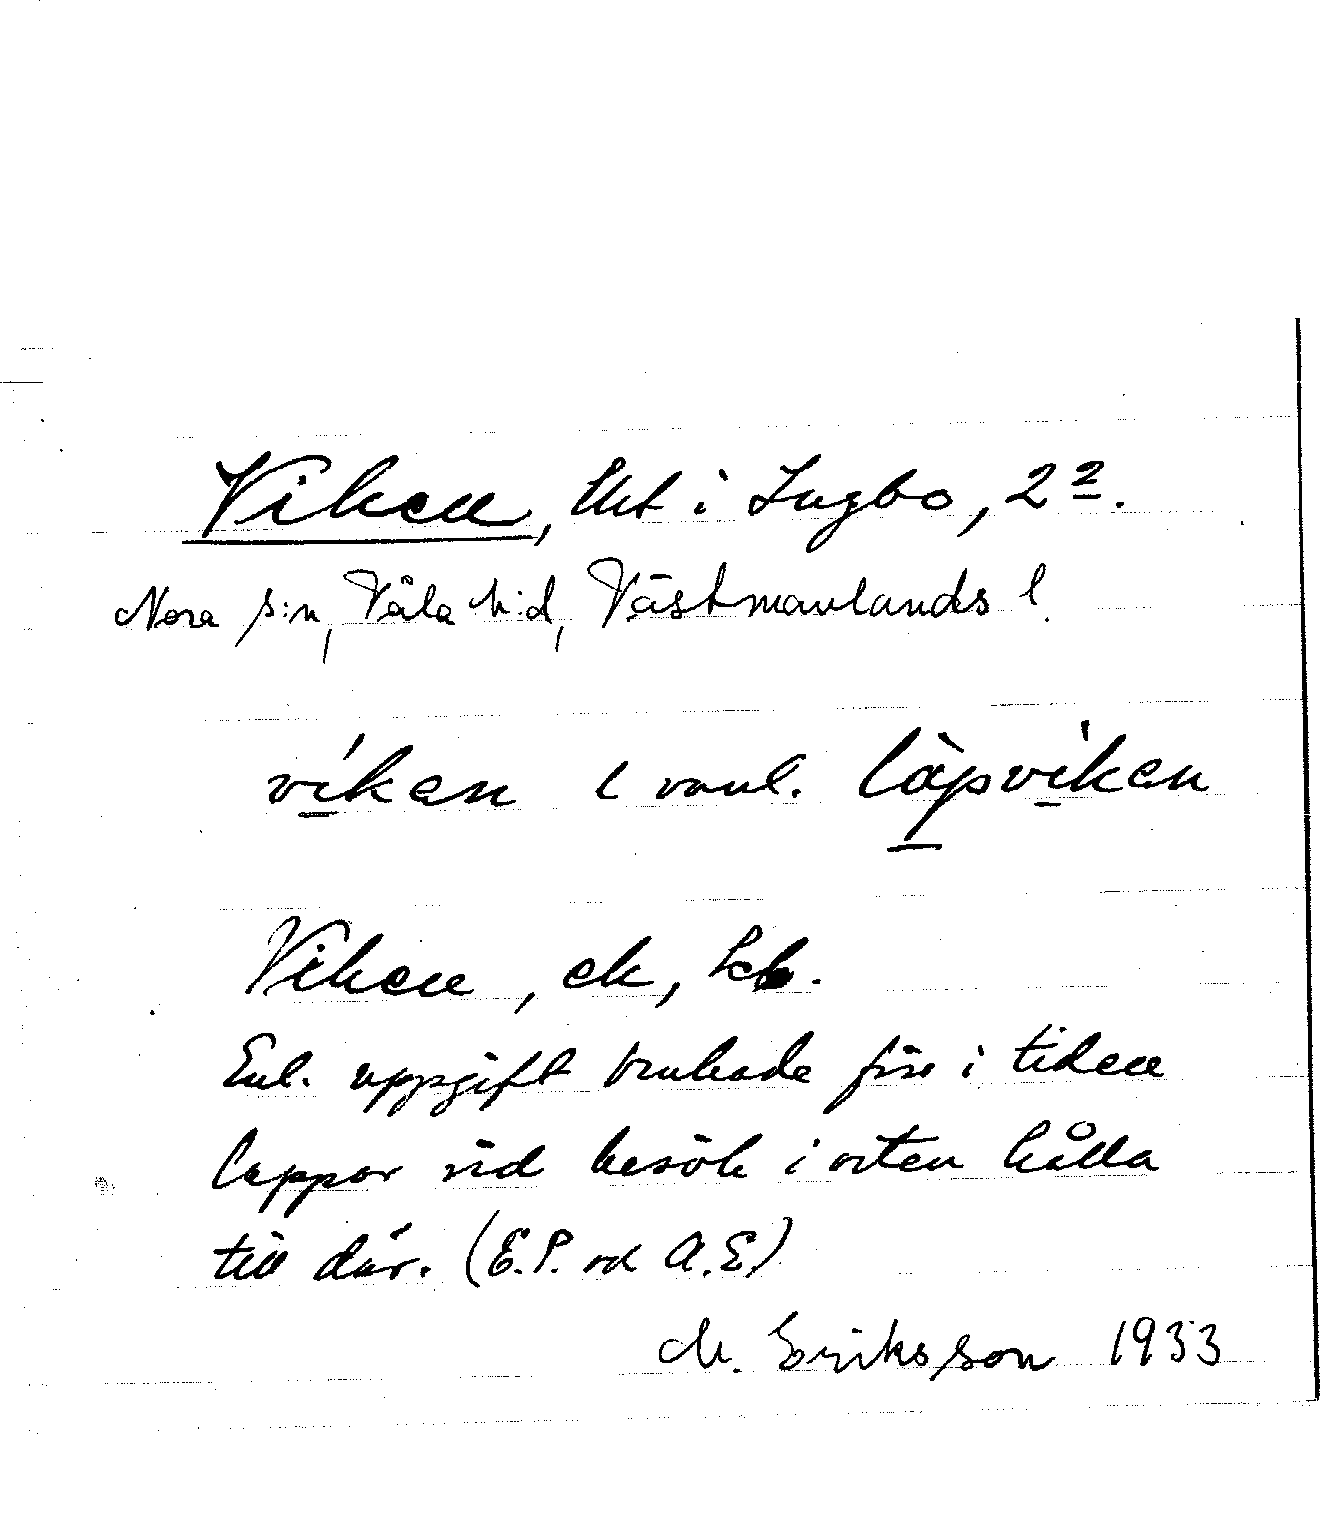 Viken, Ekt i Ingbo, 2².
Nora s:n, Våla h:d, Västmanlands l.
víken l vanl. làpvìken
Viken, ek,
Enl. uppgift brukade förr i tiden
lappar vid besök i orten hålla
till där. (E.P. och A.E)
M. Eriksson 1933